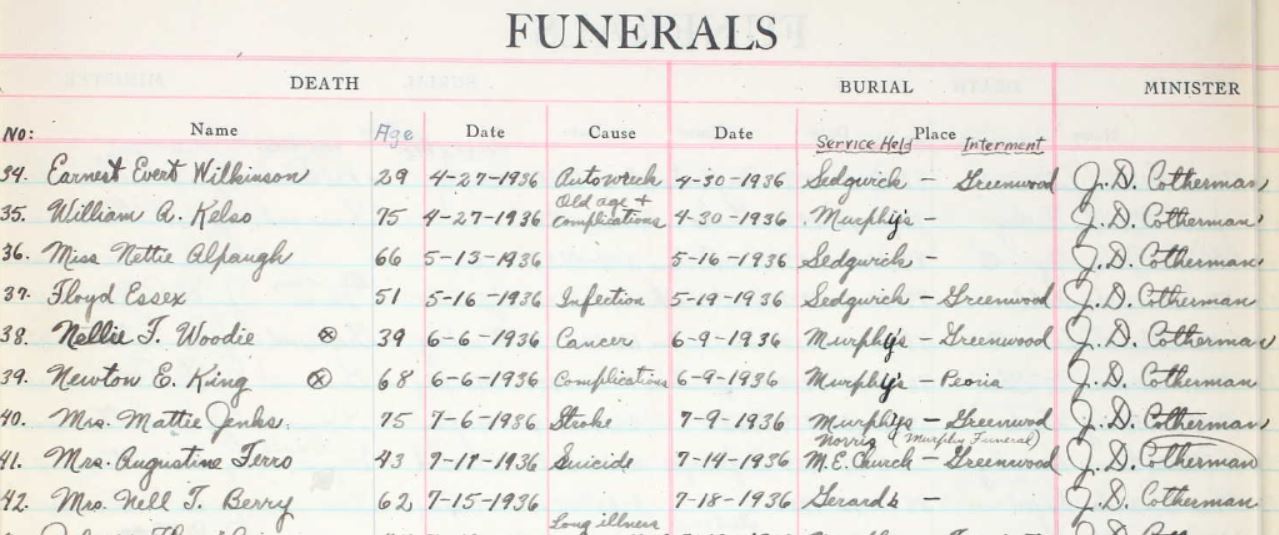 FUNERALS
DEATH BURIAL MINISTER
No: Name Age Date Cause Date Place
Service Held Interment
34. Earnest Evert Wilkinson 29 4-27-1936 Auto wreck 4-30-1936 Sedgwick - Greenwood J. D. Cotherman
Old age +
35. William A. Kelso 75 4-27-1936 complications 4-30-1936 Murphy's - J. D. Cotherman
36. Miss Nettie Alpaugh 66 5-13-1936 5-16-1936 Sedgwick - J. D. Cotherman
37. Floyd Essex 51 5-16-1936 Infection 5-19-1936 Sedgwick - Greenwood J. D. Cotherman
38. Nellie T. Woodie ⊗ 39 6-6-1936 Cancer 6-9-1936 Murphy's - Greenwood J. D. Cotherman
39. Newton E. King ⊗ 68 6-6-1936 Complications 6-9-1936 Murphy's - Peoria J. D. Cotherman
40. Mrs. Mattie Jenks 75 7-6-1936 Stroke 7-9-1936 Murphys - Greenwood J. D. Cotherman
Norris (Murphy Funeral)
41. Mrs. Augustine Ferro 43 7-11-1936 Suicide 7-14-1936 M.E. Church - Greenwood J. D. Cotherman
42. Mrs. Nell T. Berry 62 7-15-1936 7-18-1936 Gerards - J. D. Cotherman
Long illness